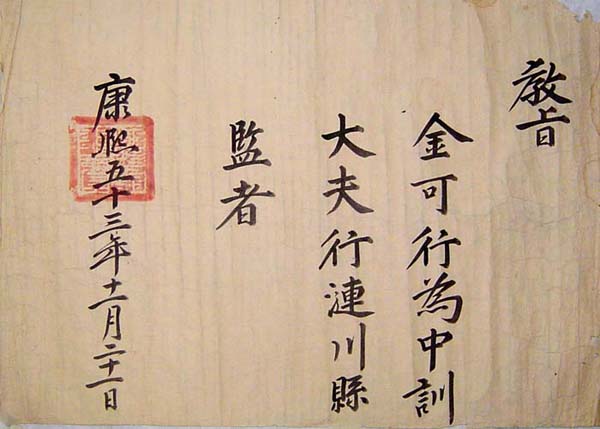 敎旨
金可行為中訓
大夫行漣川縣
監者
康熙五十三年十一月二十一日